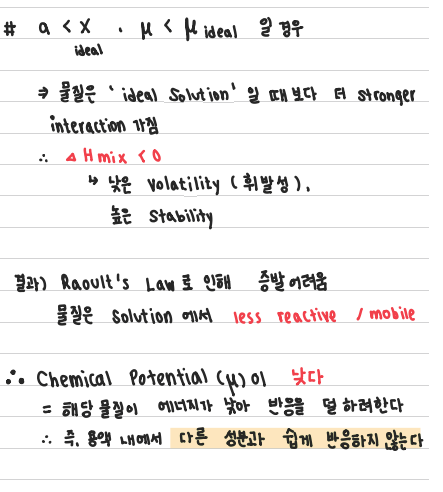 # a < X . μ < μ ideal 일 경우
ideal
⇒ 물질은 'ideal Solution' 일 때 보다 더 stronger
interaction 가짐
∴ ΔHmix < 0
↳ 낮은 Volatility (휘발성),
높은 Stability
결과) Raoult's Law 로 인해 증발 어려움
물질은 Solution 에서 less reactive / mobile
∴ Chemical Potential (μ)이 낮다
= 해당 물질이 에너지가 낮아 반응을 덜 하려한다
∴ 즉, 용액 내에서 다른 성분과 쉽게 반응하지 않는다